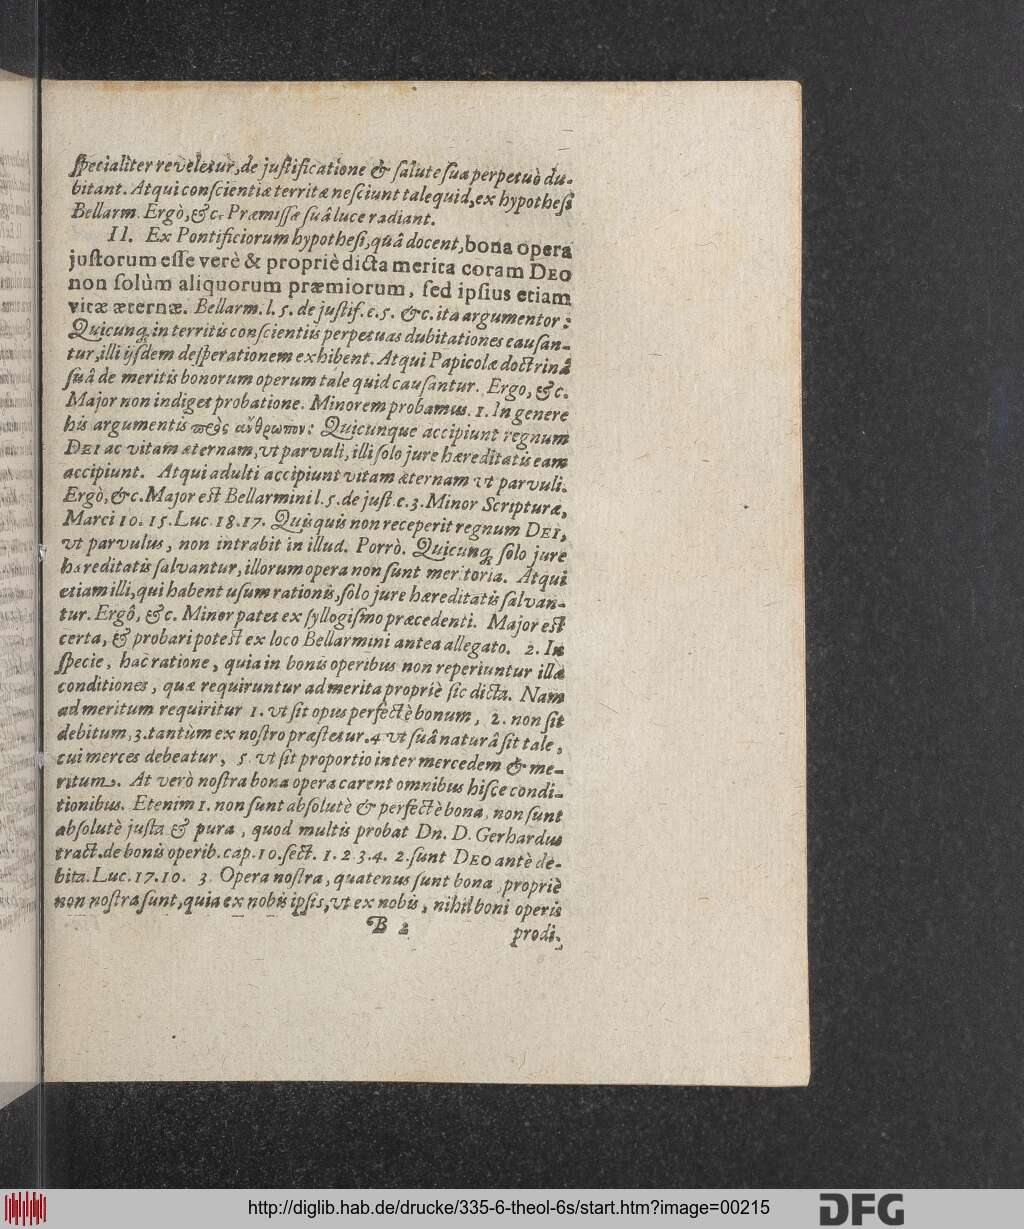 ſpecialiter reveletur, de juſtificatione & ſalute ſua perpetuò du-
bitant. Atqui conſcientiæ territæ neſciunt tale quid, ex hypotheſi
Bellarm. Ergò, &c. Præmiſſæ ſuâ luce radiant.
II. Ex Pontificiorum hypotheſi, quâ docent, bona opera
juſtorum eſſe verè & propriè dicta merita coram DEO
non ſolùm aliquorum præmiorum, ſed ipſius etiam
vitæ æternæ. Bellarm. l. 5. de juſtif. c. 5. &c. ita argumentor:
Quicunq; in territis conſcientiis perpetuas dubitationes cauſan-
tur, illi ijſdem deſperationem exhibent. Atqui Papicolæ doctrinâ
ſuâ de meritis bonorum operum tale quid cauſantur. Ergo, &c.
Major non indiget probatione. Minorem probamus. 1. In genere
his argumentis πρὸς ἄνθρωπον: Quicunque accipiunt regnum
DEI ac vitam æternam, vt parvuli, illi ſolo jure hæreditatis eam
accipiunt. Atqui adulti accipiunt vitam æternam vt parvuli.
Ergò, &c. Major eſt Bellarmini l. 5. de juſt. c. 3. Minor Scripturæ,
Marci 10. 15. Luc. 18. 17. Quisquis non receperit regnum DEI,
vt parvulus, non intrabit in illud. Porrò. Quicunq; ſolo jure
hæreditatis ſalvantur, illorum opera non ſunt meritoria. Atqui
etiam illi, qui habent uſum rationis, ſolo jure hæreditatis ſalvan-
tur. Ergô, &c. Minor patet ex ſyllogiſmo præcedenti. Major eſt
certa, & probari poteſt ex loco Bellarmini antea allegato. 2. In
ſpecie, hac ratione, quia in bonis operibus non reperiuntur illæ
conditiones, quæ requiruntur ad merita propriè ſic dicta. Nam
ad meritum requiritur 1. vt ſit opus perfectè bonum, 2. non ſit
debitum, 3. tantùm ex noſtro præſtetur. 4 vt ſuâ naturâ ſit tale,
cui merces debeatur, 5. vt ſit proportio inter mercedem & me-
ritum. At verò noſtra bona opera carent omnibus hiſce condi-
tionibus. Etenim 1. non ſunt abſolutè & perfectè bona, non ſunt
abſolutè juſta & pura, quod multis probat Dn. D. Gerhardus
tract. de bonis operib. cap. 10. ſect. 1. 2. 3. 4. 2. ſunt DEO antè de-
bita. Luc. 17. 10. 3. Opera noſtra, quatenus ſunt bona, propriè
non noſtra ſunt, quia ex nobis ipſis, vt ex nobis, nihil boni operis
B 2 prodi-
http://diglib.hab.de/drucke/335-6-theol-6s/start.htm?image=00215
DFG